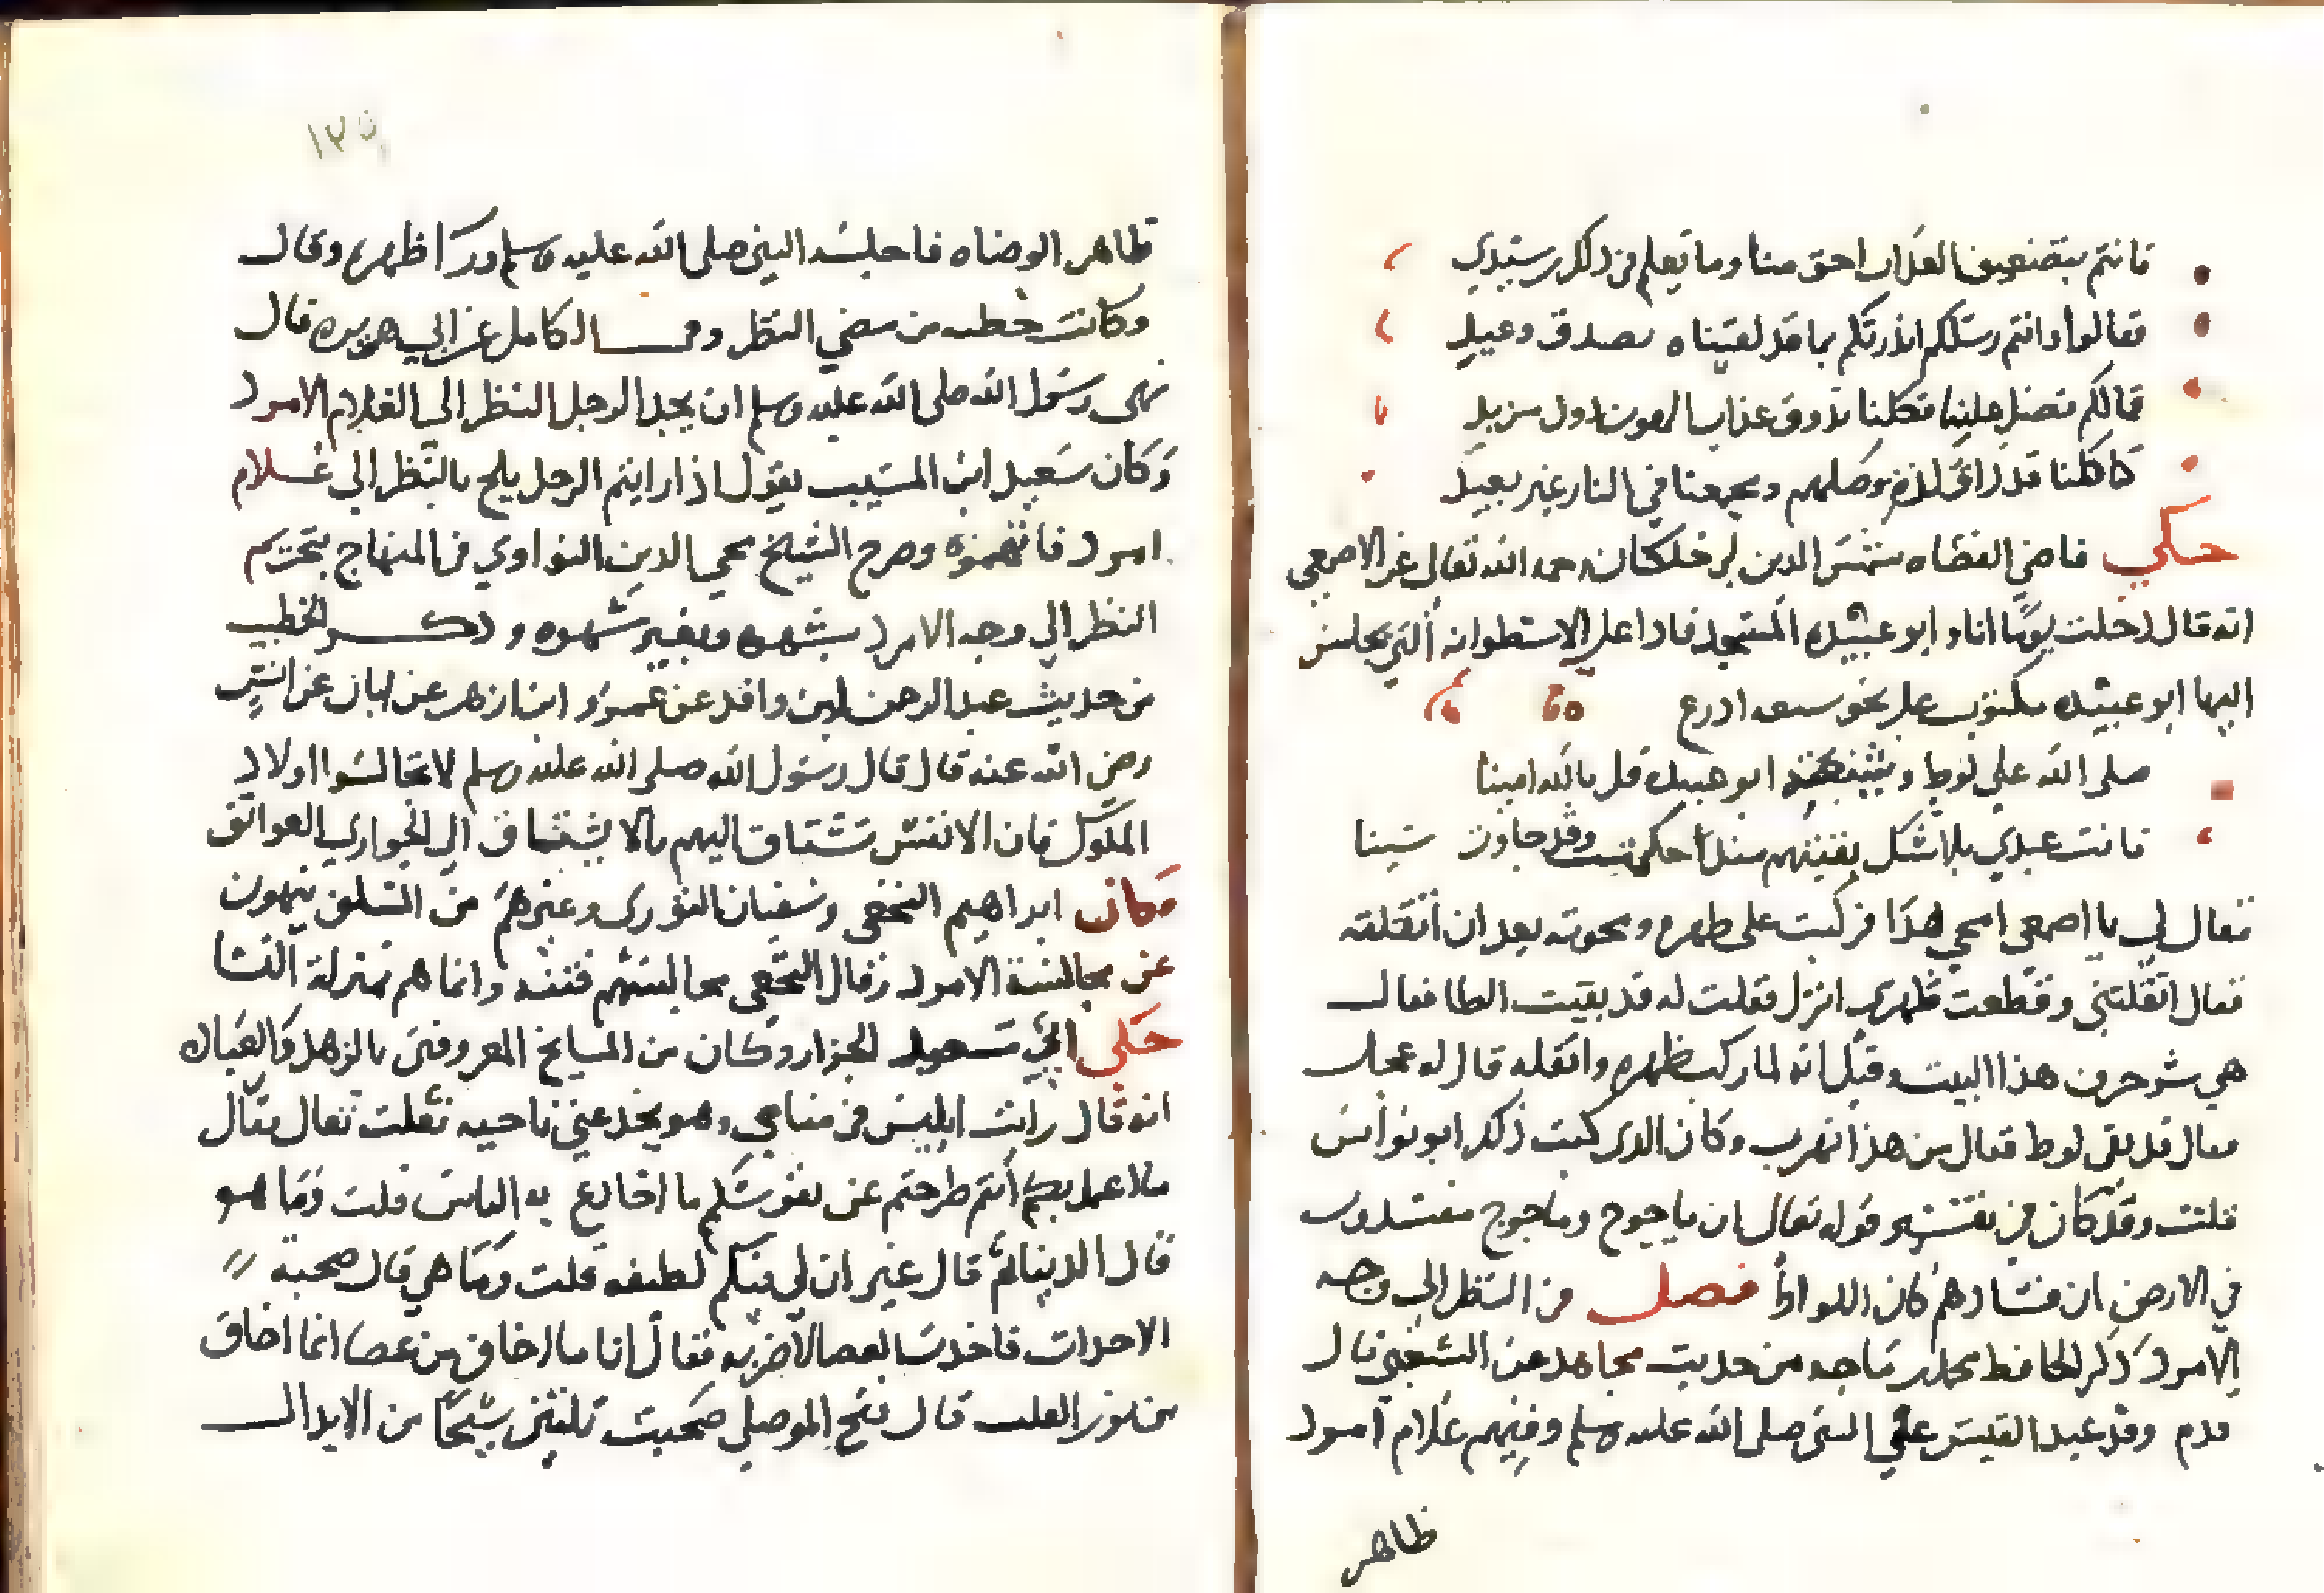 فانتم بتضعيف العذاب احق منا وما تعلم في ذلك رستبدي
فقالوا وانتم رسلكم انذرتكم بما قد لقيناه بصدق وعيد
فما لكم فضل علينا فكلنا نذوق عذاب الهون دون مزيد
كما كلنا قد ذاق لذة وصلهم ويجمعنا في النار غير بعيد
حكي قاضي القضاه شمس الدين بن خلكان رحمه الله تعالى عن الاصمعي
انه قال دخلت يوما انا وابو عبيده المسجد فاذا على الاسطوانه التي يجلس
اليها ابو عبيده مكتوب على نحو سبعه اذرع
صلى الله على لوط وشيعته ابو عبيده قل بالله امينا
فانت عندي بلا شك بقيتهم منذ احتلمت وقد جاوزت ستينا
فقال لي يا اصمعي امحي هذا فركبت على ظهره ومحوته بعد ان اثقلته
فقال اثقلتني وقطعت ظهري انزل فقلت له قد بقيت الطا فقال
هي شر حرف هذا البيت وقيل انه لما ركب ظهره واثقله قال له عجل
فقال قد بقى لوط فقال من هذا نهرب وكان الذي كتب ذلك ابو نواس
قلت وقد كان في نفسير قوله تعالى ان ياجوج وماجوج مفسدون
في الارض ان فسادهم كان اللواط فصل في النظر الى وجه
الامرد ذكر الحافظ محمد بن ماجه من حديث مجاهد عن الشعبي قال
قدم وفد عبد القيس على النبي صلى الله عليه وسلم وفيهم غلام امرد
ظاهر
١٣٥
ظاهر الوضاه فاجلسه النبي صلى الله عليه وسلم ورا ظهره وقال
وكانت خطيه من مضي النظر وفي الكامل عن ابي هريره قال
نهى رسول الله صلى الله عليه وسلم ان يحد الرجل النظر الى الغلام الامرد
وكان سعيد ابن المسيب يقول اذا رايتم الرجل يلح بالنظر الى غلام
امرد فاتهموه وصرح الشيخ محي الدين النواوي في المنهاج بتحريم
النظر الى وجه الامرد بشهوه وبغير شهوه وذكر الخطيب
من حديث عبد الرحمن ابن واقد عن عمرو ابن ازهر عن ابان عن انس
رضي الله عنه قال قال رسول الله صلى الله عليه وسلم لا تجالسوا اولاد
الملوك فان الانفس تشتاق اليهم مالا يشتاق الى الجواري العواتق
وكان ابراهيم النخعي وسفيان الثوري وغيرهم من السلف ينهون
عن مجالسة الامرد وقال النخعي مجالستهم فتنه وانما هم بمنزلة النسا
حكي ابي سعيد الخزاز وكان من المشايخ المعروفين بالزهد والعباده
انه قال رايت ابليس في منامي وهو يمر عني ناحيه فقلت تعال فقال
ما اعمل بكم انتم طرحتم عن نفوسكم ما اخادع به الناس قلت وما هو
قال الدنيا ثم قال غير ان لي فيكم لطيفه قلت وما هي قال صحبة
الاحداث فاخذت العصا لاضربه فقال انا ما اخاف من عصا انما اخاف
من نور القلب قال فتح الموصلي صحبت ثلثين شيخا من الابدال